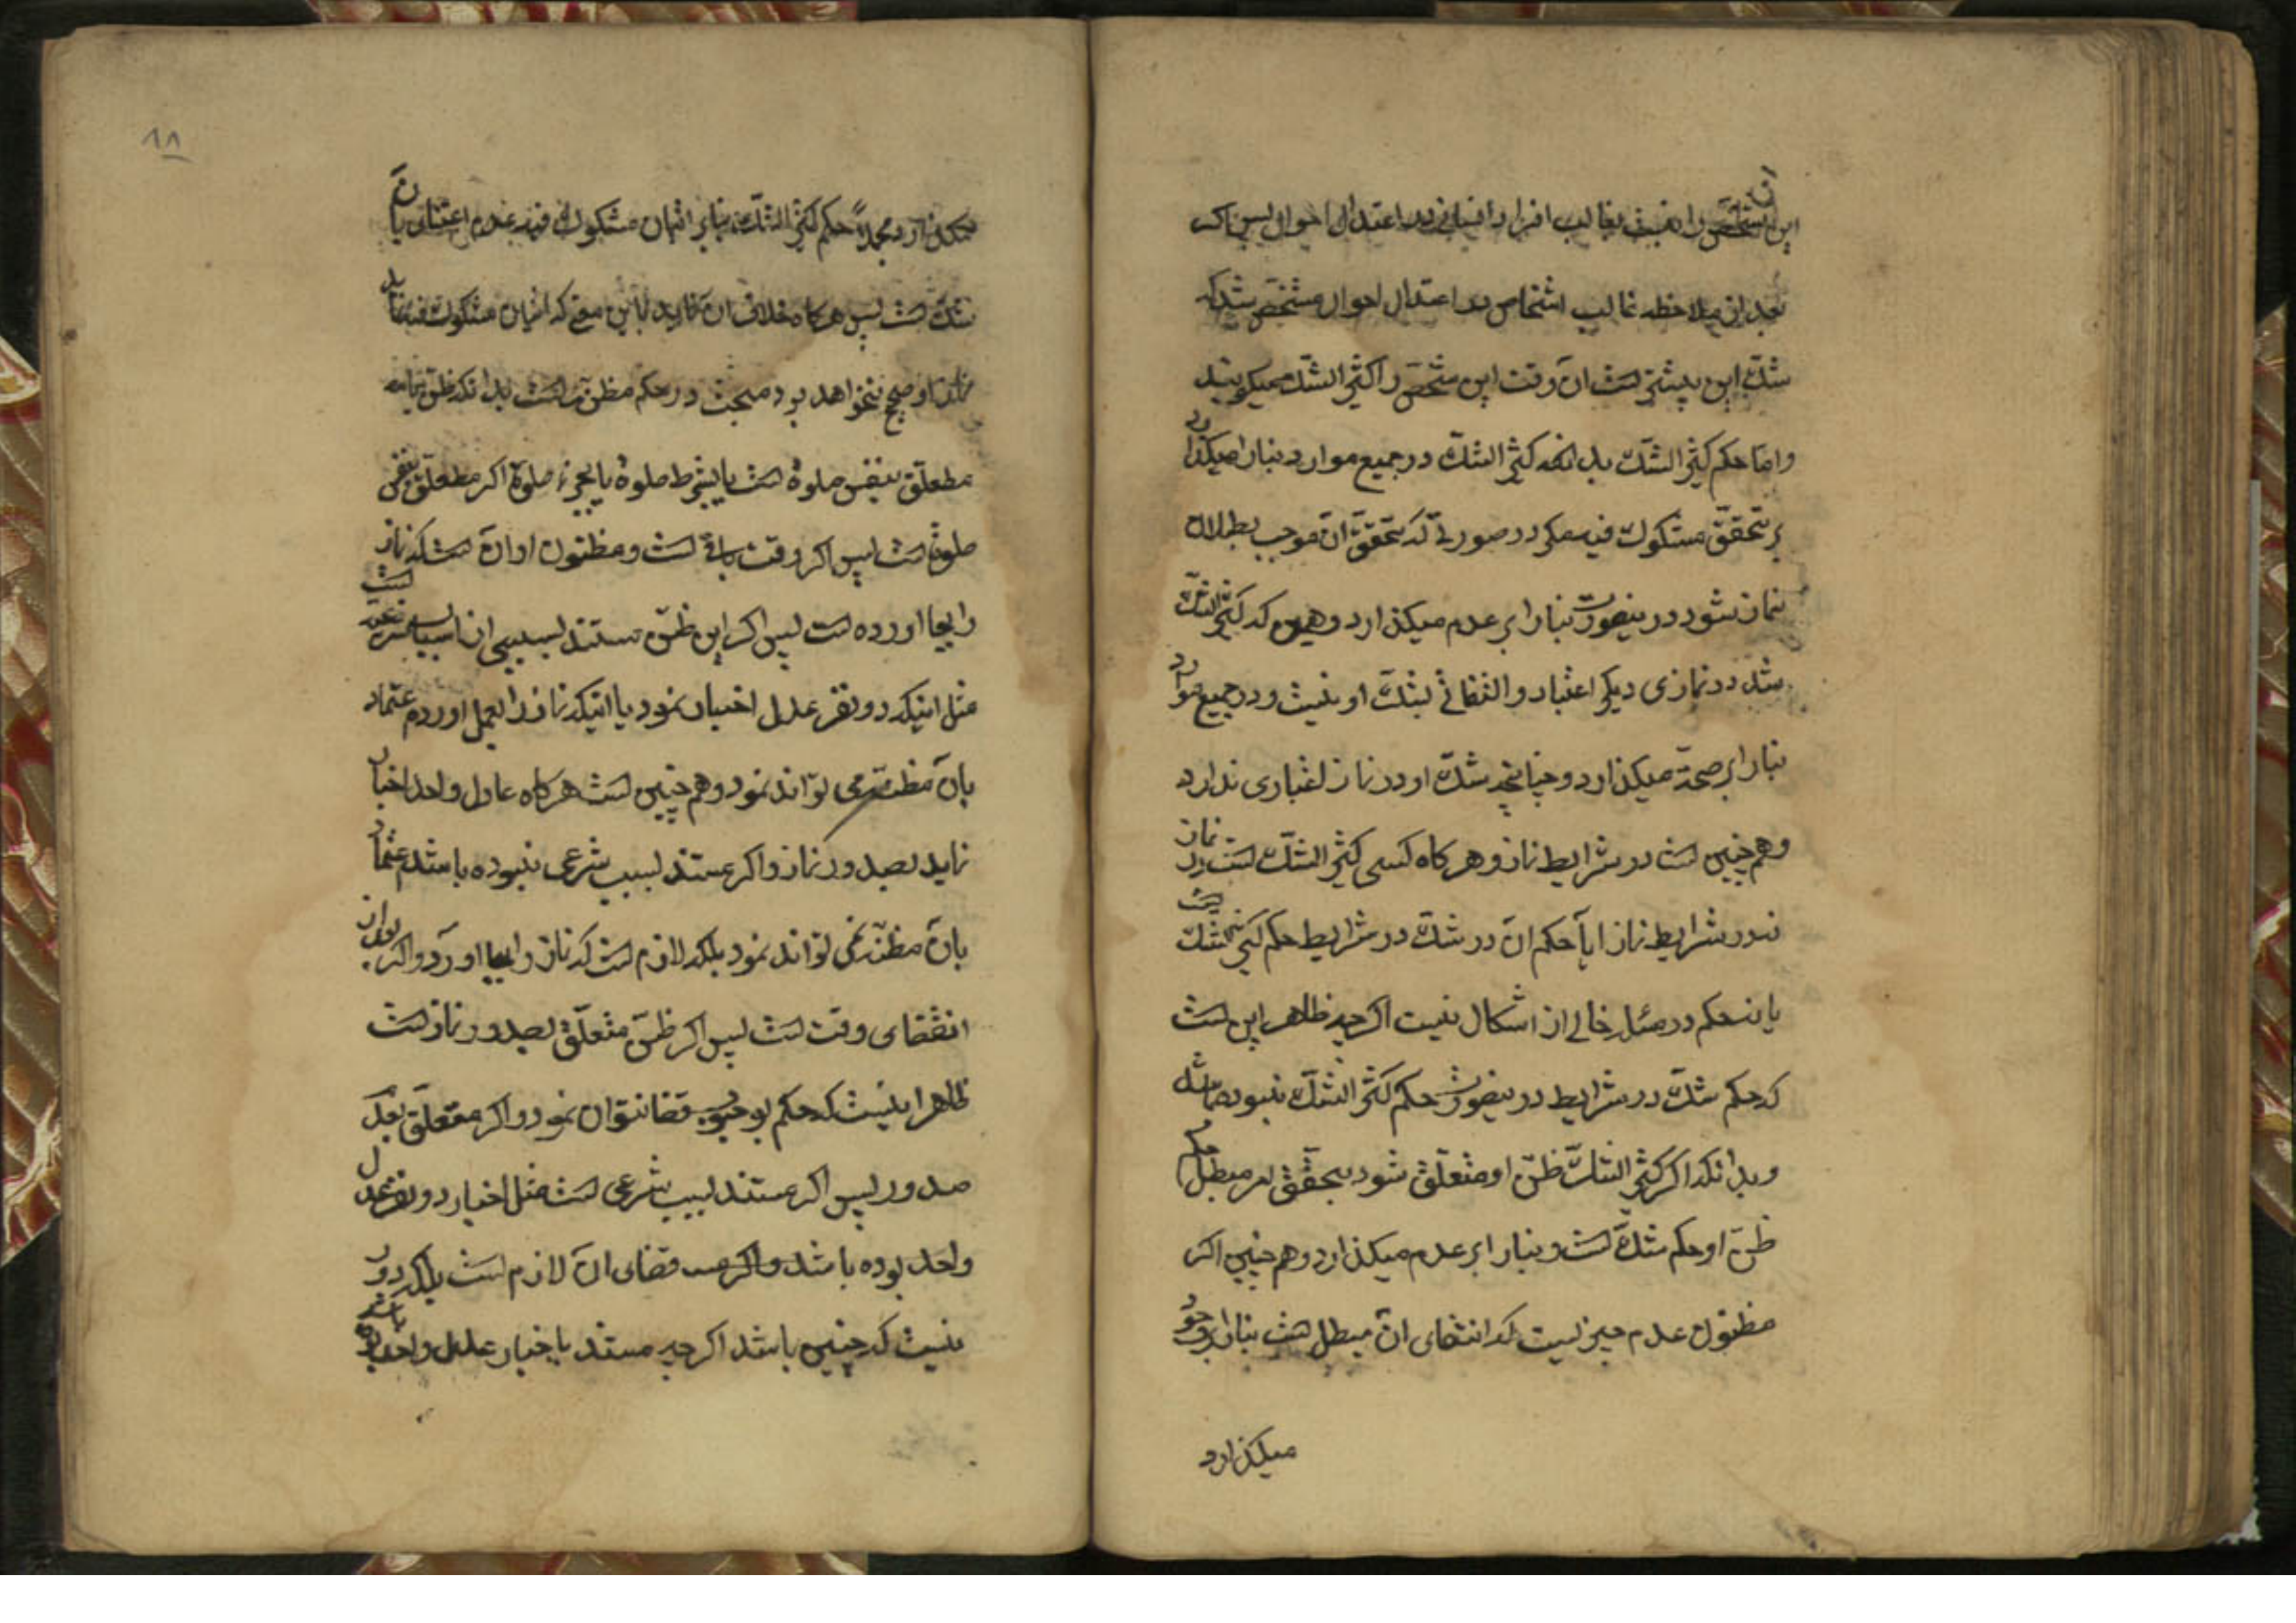 این شخص را نسبت بغالب افراد انسانی در اعتدال احوال پس اگر
بعد از ملاحظه غالب اشخاص در اعتدال احوال مشخص شد که
شک این بیشتر است آن وقت این شخص را کثیر الشک میگویند
و اما حکم کثیر الشک بدانکه کثیر الشک در جمیع موارد بنا را میگذارد
بر تحقق مشکوک فیه مگر در صورتی که تحقق آن موجب بطلان
نماز شود در ینصورت بنا را بر عدم میگذارد و همین که کثیر الشک
شد در نمازی دیگر اعتبار و التفاتی بشک او نیست و در جمیع موارد
بنا را بر صحة میگذارد و چنانچه شک او در نماز اعتباری ندارد
و هم چنین است در شرایط نماز و هر کاه کسی کثیر الشک است در نماز
نه در شرایط نماز ایا حکم آن در شک در شرایط حکم کثیر الشک است
یا نه حکم در مسئله خالی از اشکال نیست اگر چه ظاهر این است
که حکم شک در شرایط در ینصورت حکم کثیر الشک نبوده باشد
و بدانکه اگر کثیر الشک ظن او متعلق شود بتحقق امر مبطل حکم
ظن او حکم شک است و بنا را بر عدم میگذارد و هم چنین اگر
مظنون عدم چیزیست که انتفای آن مبطل است بنا را بر وجود
میگذارد
۱۸
میگذارد مجدداً حکم کثیر الشک بنا بر اتیان مشکوک فیه و عدم اعتنا بآن
شک است پس هر کاه خلاف آن نماید باین معنی که اتیان مشکوک فیه نماید
نماز او صحیح نخواهد بود مبحث در حکم مظنه است بدانکه ظن یا
متعلق بنفس صلوة است یا بشرط صلوة یا بجزء صلوة اگر متعلق بنفس
صلوة است پس اگر وقت باقی است و مظنون او آن است که نماز
را بجا اورده است پس اگر این ظن مستند بسببی از اسباب شرعیه است
مثل اینکه دو نفر عدل اخبار نمود یا اینکه نماز را بعمل اوردم اعتماد
بآن مظنه می تواند نمود و هم چنین است هر کاه عادل واحد اخبار
نماید بصدور نماز و اگر مستند بسبب شرعی نبوده باشد اعتماد
بآن مظنه نمی تواند نمود بلکه لازم است که نماز را بجا اورد و اگر بعد از
انقضای وقت است پس اگر ظن متعلق بصدور نماز است
ظاهر اینست که حکم بوجوب قضا نتوان نمود و اگر متعلق بعدم
صدور پس اگر مستند بسبب شرعی است مثل اخبار دو نفر عدل
واحد بوده باشد قضای آن لازم است بلکه دور
نیست که چنین باشد اگر چه مستند باخبار عدل واحد بوده باشد